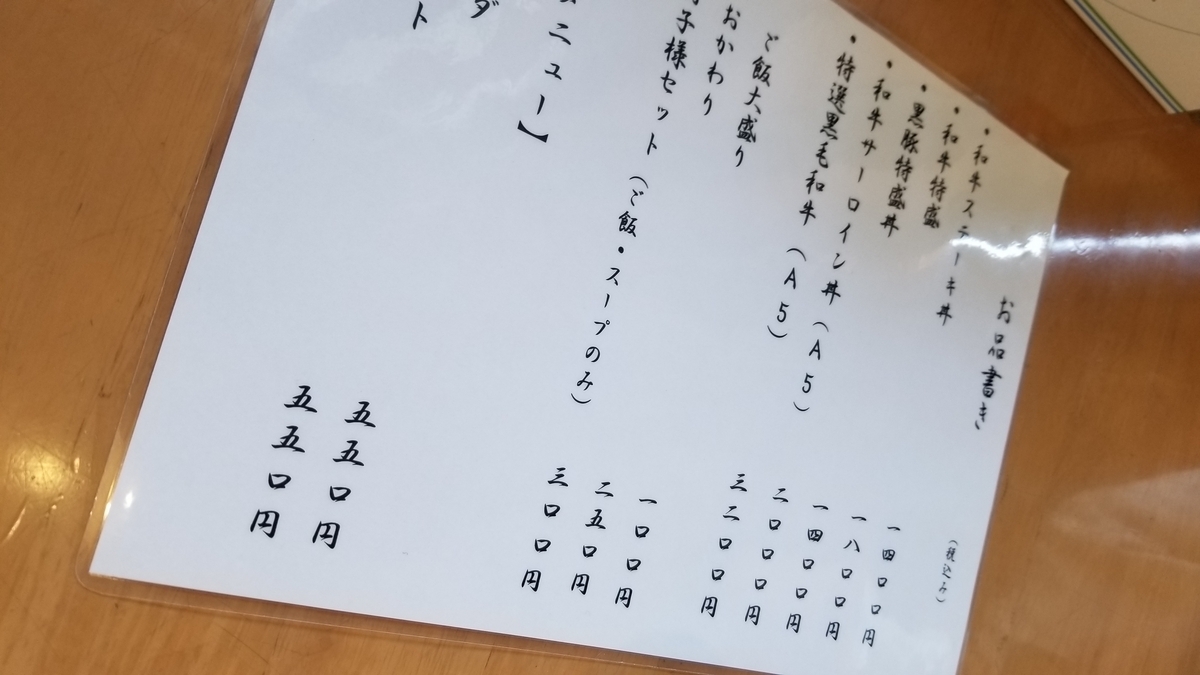 お品書き
（税込み）
・和牛ステーキ丼 一四〇〇円
・和牛特盛 一八〇〇円
・黒豚特盛丼 一四〇〇円
・和牛サーロイン丼（A5） 二〇〇〇円
・特選黒毛和牛（A5） 三二〇〇円
ご飯大盛り 一〇〇円
おかわり 二五〇円
子様セット（ご飯・スープのみ） 三〇〇円
ニュー】
ダ 五五〇円
ト 五五〇円